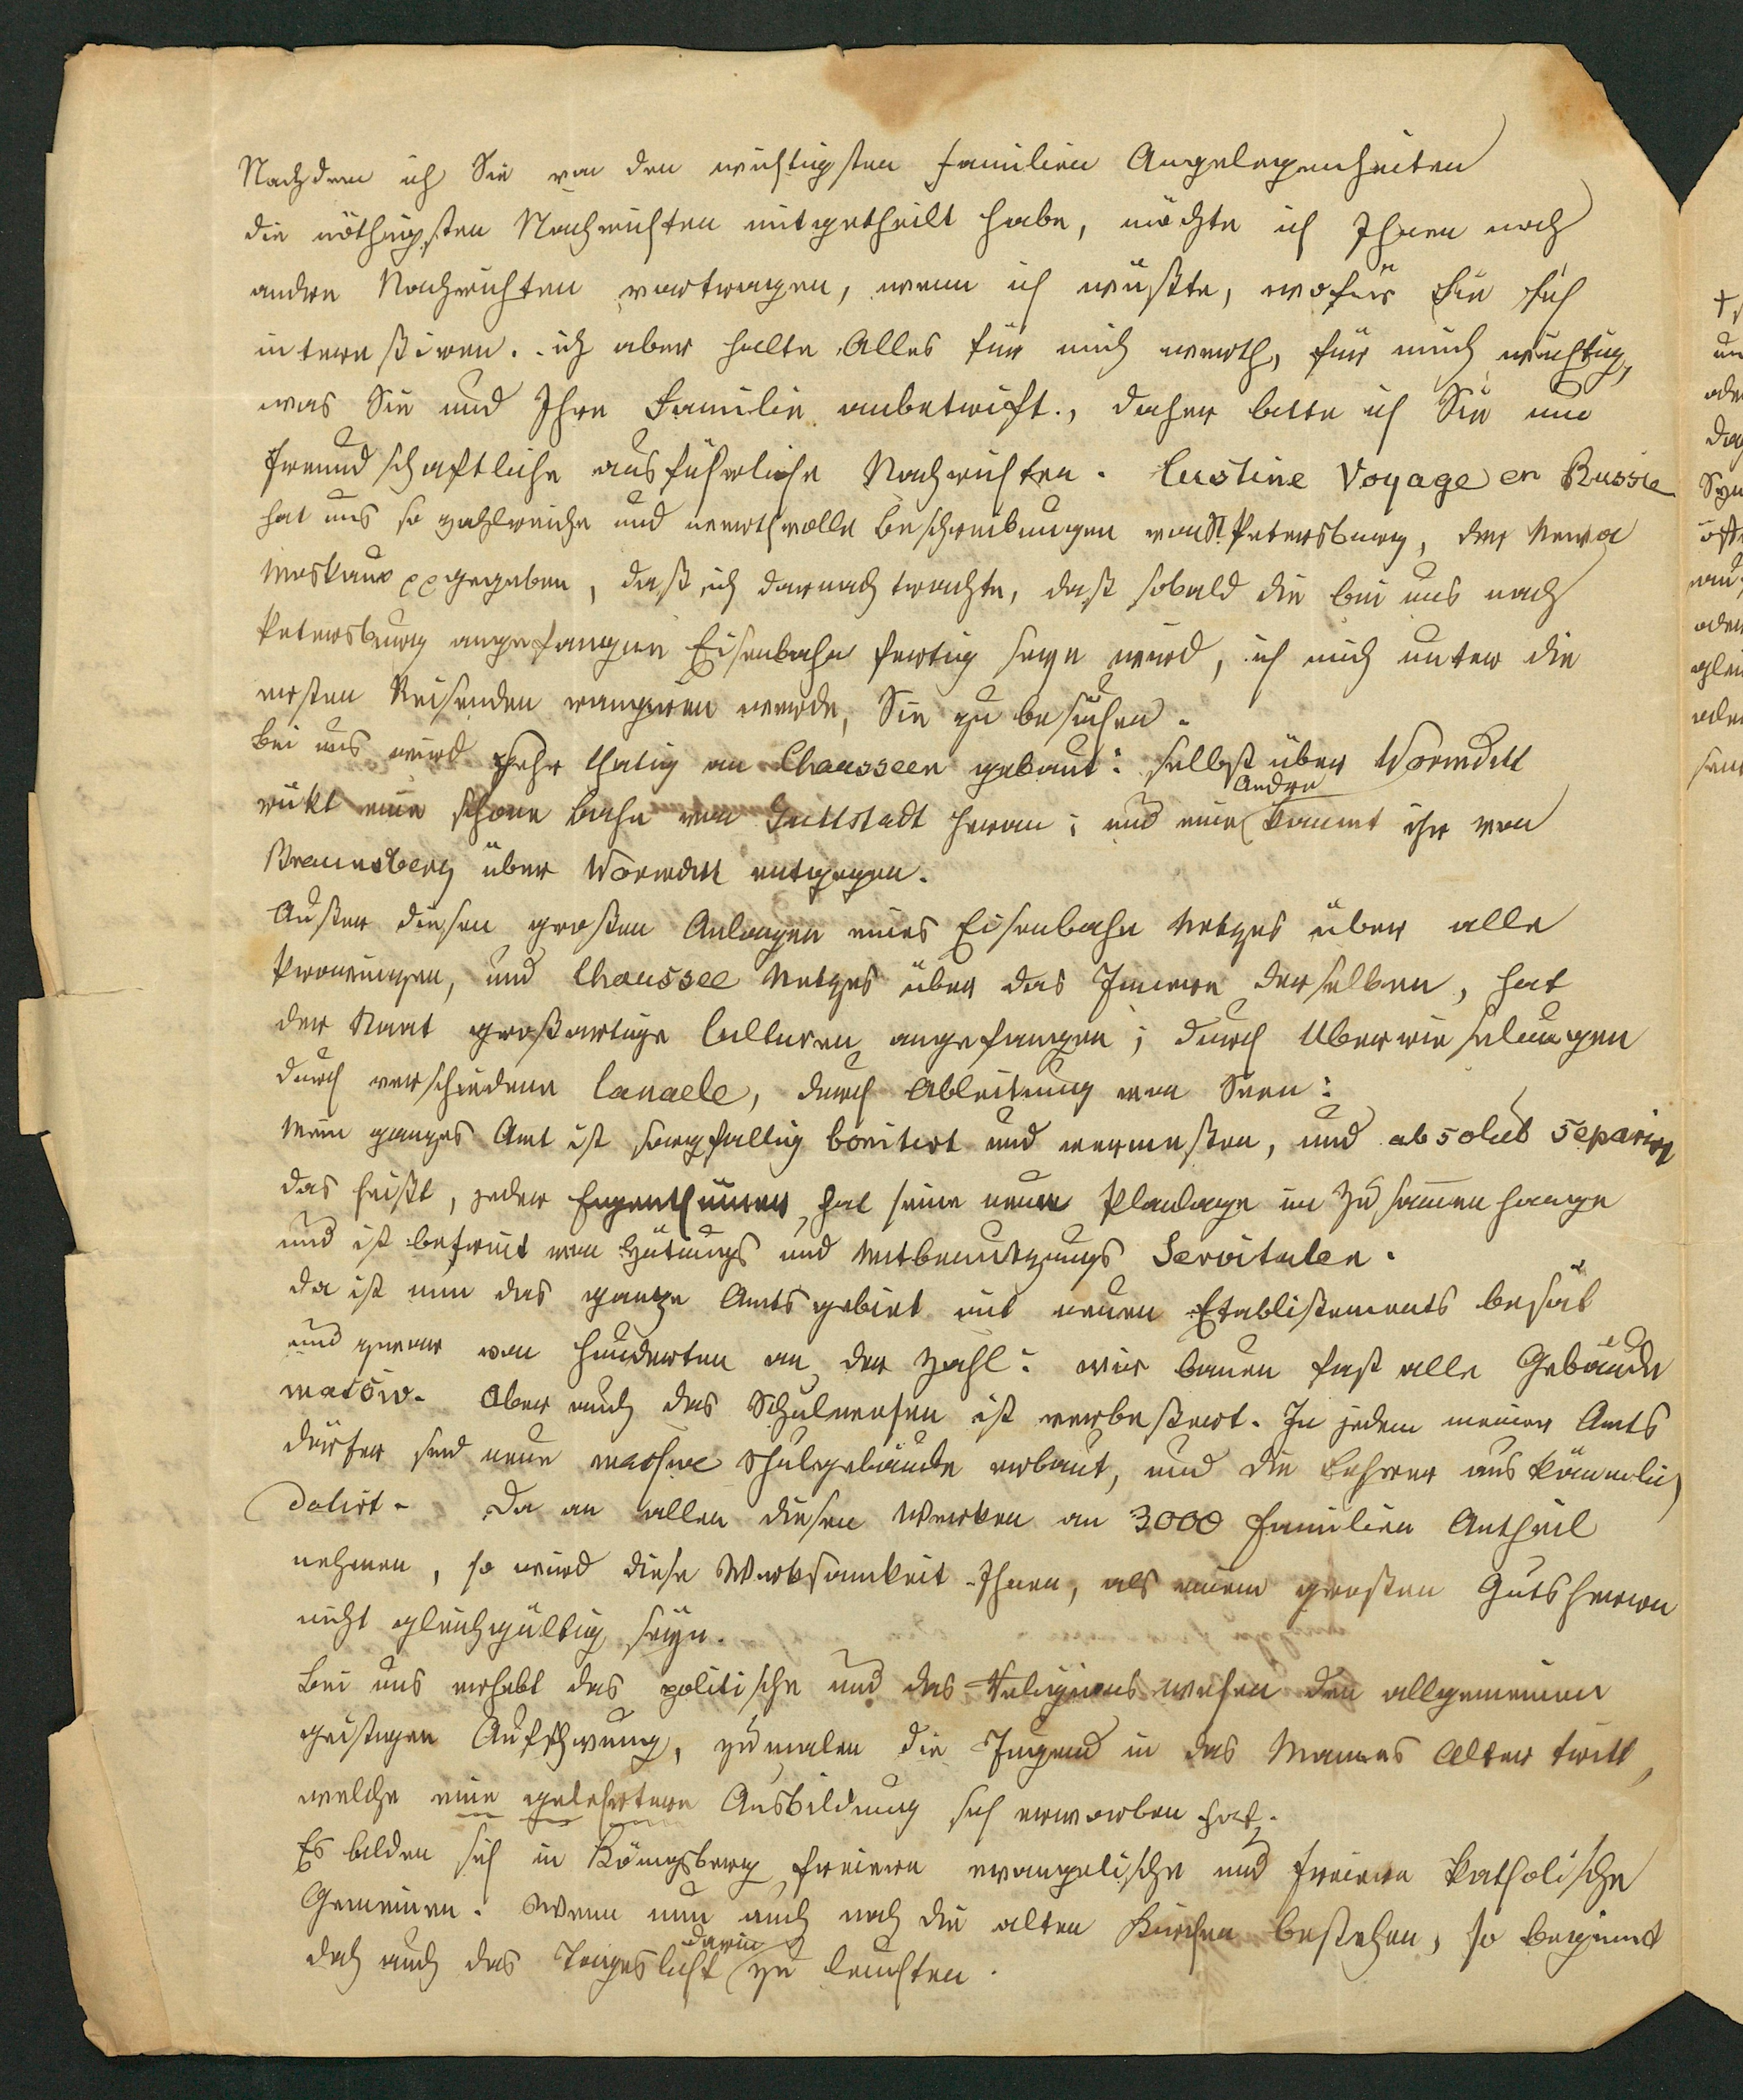 Nachdem ich Sie von den wichtigsten Familien Angelegenheiten
die nöthigsten Nachrichten mitgetheilt habe, möchte ich Ihnen noch
andre Nachrichten vortragen, wenn ich wüßte, wofür Sie sich
intereßiren. ich aber halte Alles für mich werth, für mich wichtig,
was Sie und Ihre Familie anbetrift., daher bitte ich Sie um
freundschaftliche ausführliche Nachrichten. Custine Voyage en Russie
hat uns so zahlreiche und werthvolle Beschreibungen von St. Petersburg, der Newa
Moskau pp gegeben, daß ich darnach trachte, daß sobald die bei uns nach
Petersburg angefangne Eisenbahn fertig seyn wird, ich mich unter die
ersten Reisenden rangiren werde, Sie zu besuchen.
Bei uns wird sehr thatig an Chausseen gebaut: selbst über Wormditt
rükt eine schöne Bahn von Guttstadt heran; und eine Andre kommt ihr von
Braunsberg über Wormditt entgegen.
Außer diesen großen Anlagen eines Eisenbahn Netzes über alle
Provinzen, und Chaussee Netzes über das Innere derselben, hat
der Staat großartige Culturen angefangen; durch Uberrieselungen
durch verschiedene Canaele, durch Ableitung von Seen:
Mein ganzes Amt ist sorgfaltig bonitirt und vermeßen, und absolut separirt
das heißt, jeder Eigenthümer, hat seine neue Planlage im Zusammenhange
und ist befreit von Hütungs und Mitbenutzungs Servituten.
da ist nun das ganze Amtsgebiet mit neuen Etablißements besät
und zwar von Hunderten an der Zahl: wir bauen fast alle Gebäude
masiv. Aber auch das Schulwesen ist verbeßert. In jedem meiner Amts
dörfer sind neue massive Schulgebäude erbaut, und die Lehrer auskömmlich
dotirt. Da an allen diesen Werken an 3000 Familien Antheil
nehmen, so wird diese Wirksamkeit Ihnen, als einem großen Gutsherren
nicht gleichgültig seyn.
Bei uns erhebt das politische und das Religionswesen den allgemeinen
geistigen Aufschwung, zumalen die Jugend in das Mannes Alter tritt,
welche eine gelehrtere Ausbildung sich erworben hat.
Es bilden sich in Königsberg freiere evangelische und freiere katholische
Gemeinen. Wenn nun auch noch die alten Kirchen bestehen, so beginnt
doch auch das Tageslicht darin zu leuchten.